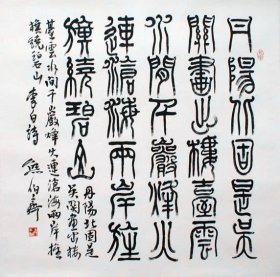 丹陽北固是吳
關畫出樓臺雲
水間千巖烽火
連滄海兩岸旌
旗繞碧山
丹陽北固是
吳關畫出樓
臺雲水間千巖烽火連滄海兩岸旌
旗繞碧山李白詩
熊伯齊